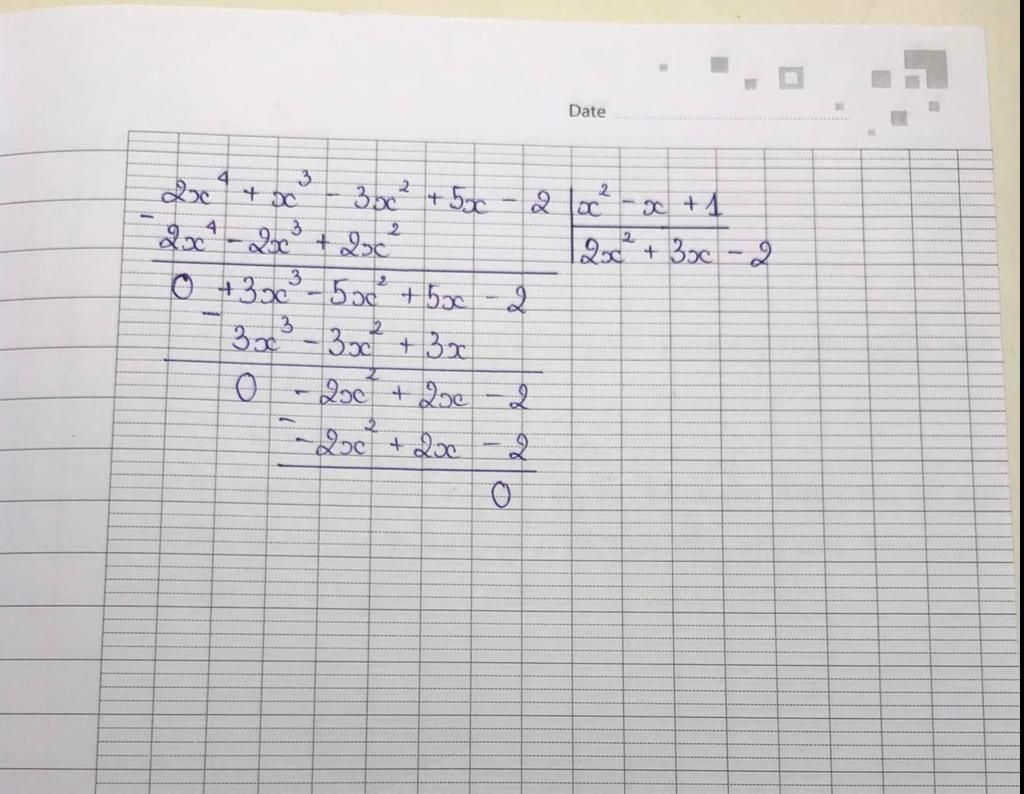 Date
2x⁴ + x³ - 3x² + 5x - 2 | x² - x + 1
- 2x⁴ - 2x³ + 2x² | 2x² + 3x - 2
0 + 3x³ - 5x² + 5x - 2
- 3x³ - 3x² + 3x
0 - 2x² + 2x - 2
- - 2x² + 2x - 2
0